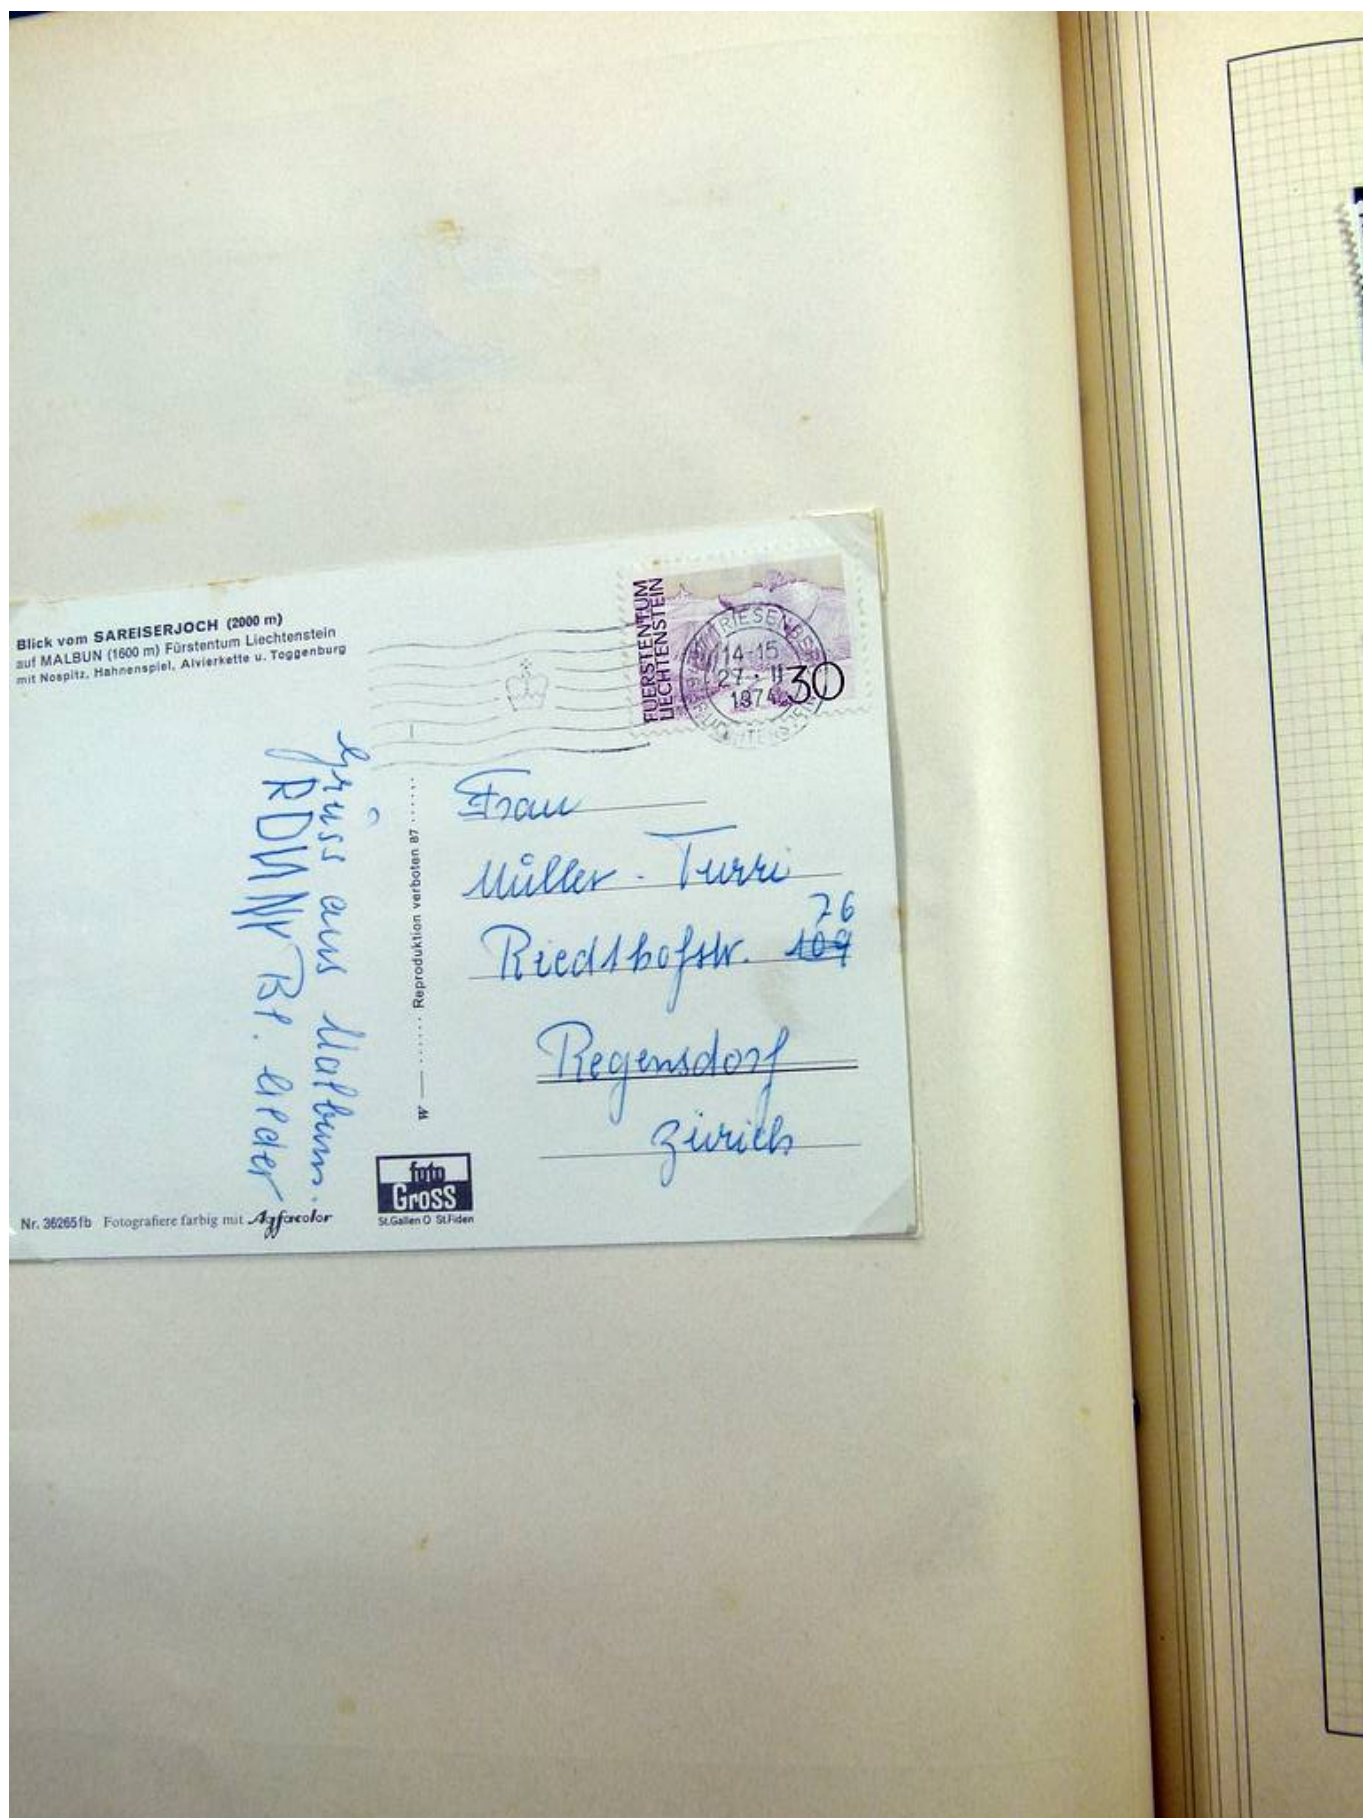 Blick vom SAREISERJOCH (2000 m)
auf MALBUN (1600 m) Fürstentum Liechtenstein
mit Nospitz, Hahnenspiel, Alvierkette u. Toggenburg
FUERSTENTUM
LIECHTENSTEIN
30
TRIESENBERG
14-15
27. II
1974
Gruss aus Malbun.
Reproduktion verboten 87
W
Frau
Müller - Turri
76
Riedthofstr. 109
Regensdorf
Zürich
foto
Gross
St.Gallen O St.Fiden
Nr. 36265fb Fotografiere farbig mit Agfacolor